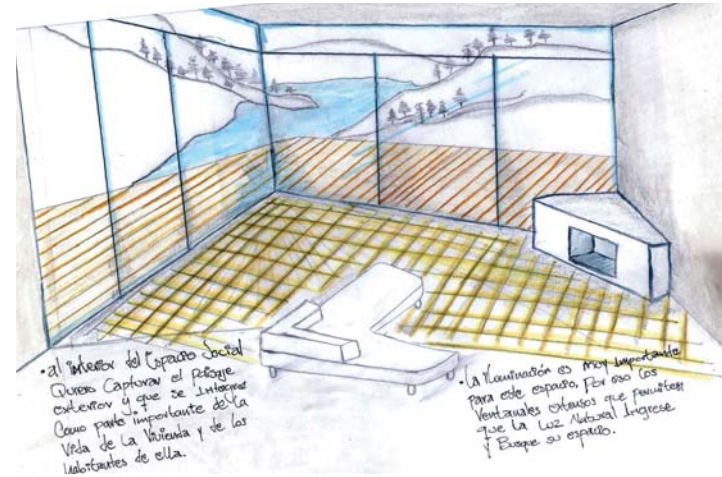 • al interior del Espacio Social
Quiero Capturar el Paisaje
exterior y que se Integre
Como parte importante de la
Vida de La Vivienda y de los
Habitantes de ella.
• La Iluminación es muy Importante
para este espacio, Por eso Los
Ventanales extensos que permiten
que La Luz Natural Ingrese
y Busque su espacio.